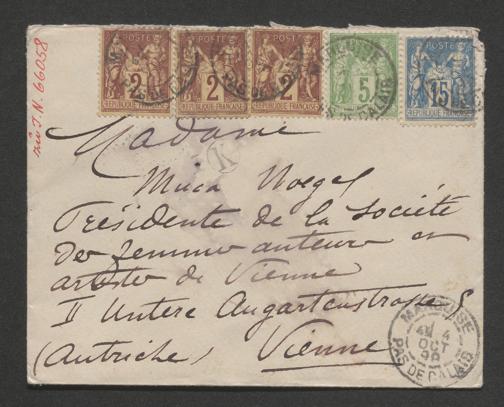 J.N. 66058
POSTES POSTES POSTES POSTES POSTES
2 2 2 5 15
REPUBLIQUE FRANÇAISE REPUBLIQUE FRANÇAISE REPUBLIQUE FRANÇAISE REPUBLIQUE FRANÇAISE REPUBLIQUE FRANÇAISE
Madame
Présidente de la Société
de femme auteure et
artiste de Vienne
II Untere Augartenstrasse
(Autriche) Vienne
MARQUISE
4
OCT
PAS DE CALAIS